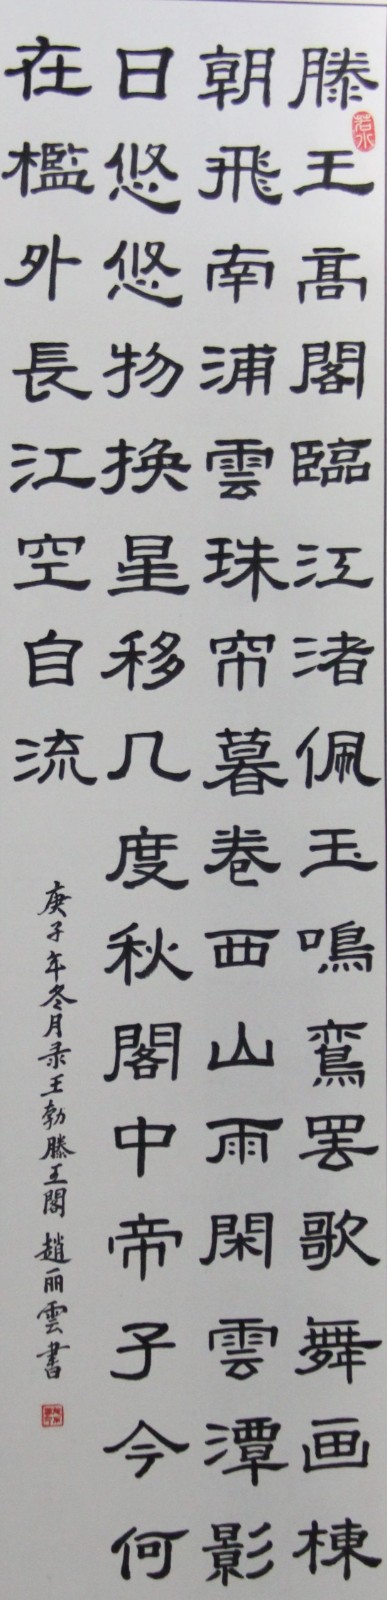 滕王高閣臨江渚佩玉鳴鸞罢歌舞画棟
朝飛南浦雲珠帘暮卷西山雨閑雲潭影
日悠悠物换星移几度秋閣中帝子今何
在檻外長江空自流
庚子年冬月录王勃滕王閣 趙丽雲書
若水